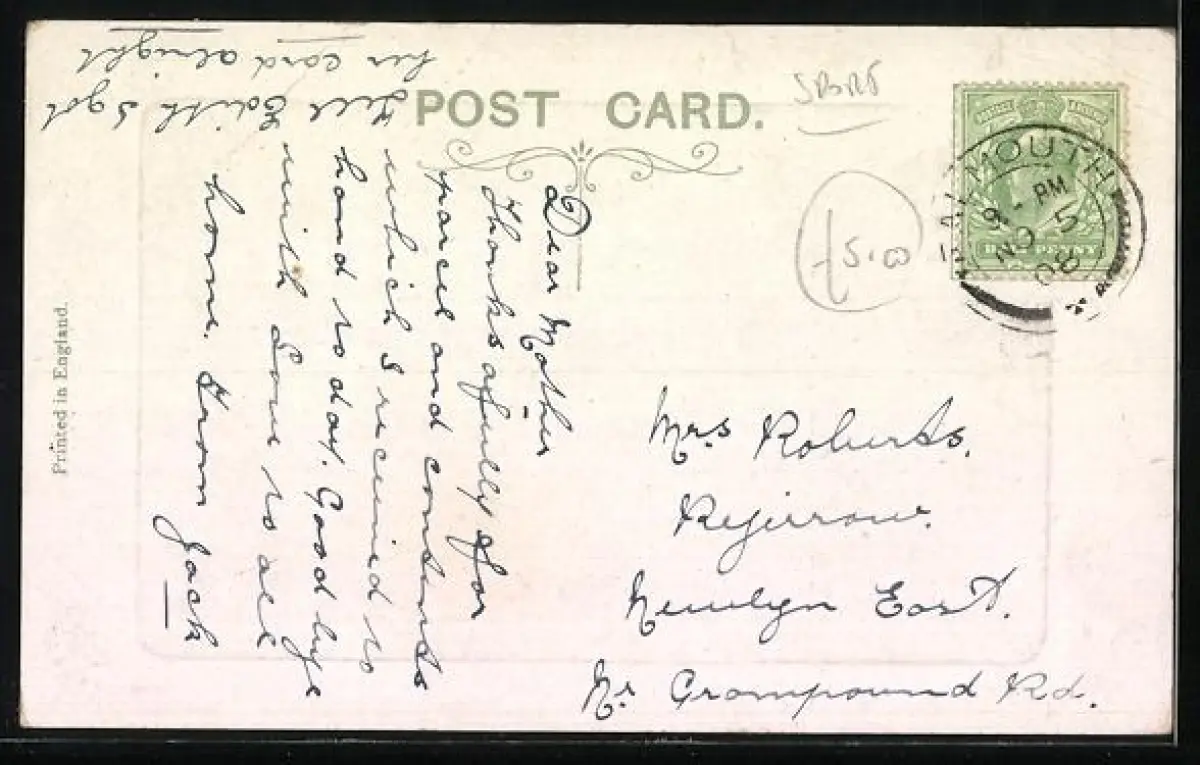 POST CARD.
Dear Mother
Thanks afully for
parcel and contents
which I received to
hand to day. Good bye
with Love to all
home. From Jack
Tell Edith I got
her card alright
Mrs Roberts.
Rejerrow.
Newlyn East.
Nr Grampound Rd.
FALMOUTH
9 - PM
NO 5
08
HALF PENNY
£5.00
Printed in England.